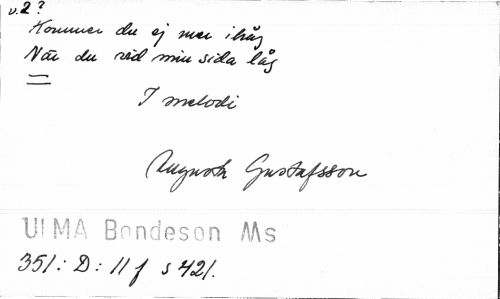 v.2?
Kommer du ej mer ihåg
När du vid min sida låg
I melodi
Augusta Gustafsson
ULMA Bondeson Ms
351: D: 11 f s 421.